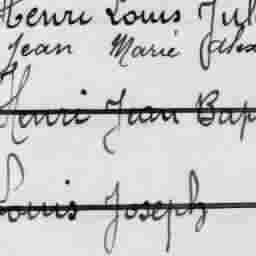 Henri Louis Jul
Jean Marie Alex
Henri Jean Bap
Louis Joseph